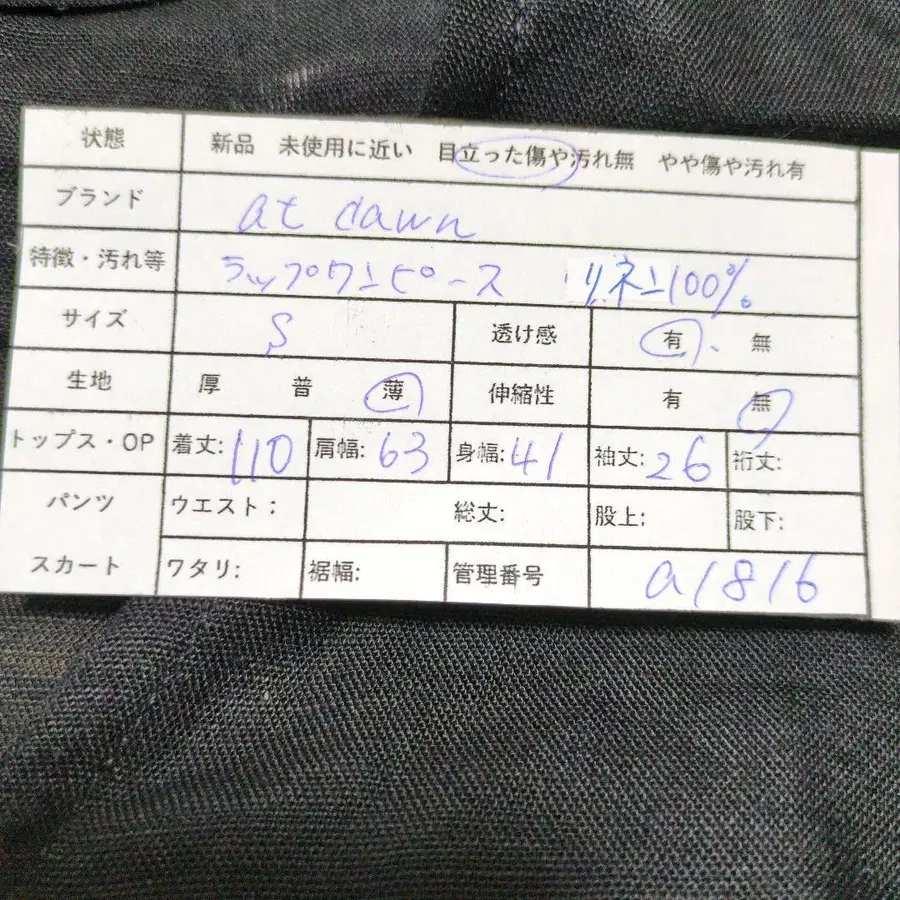 状態 新品 未使用に近い 目立った傷や汚れ無 やや傷や汚れ有
ブランド at dawn
特徴・汚れ等 ラップワンピース リネン100%
サイズ S 透け感 有 、 無
生地 厚 普 薄 伸縮性 有 無
トップス・OP 着丈:110 肩幅:63 身幅:41 袖丈:26 裄丈:
パンツ ウエスト: 総丈: 股上: 股下:
スカート ワタリ: 裾幅: 管理番号 a1816